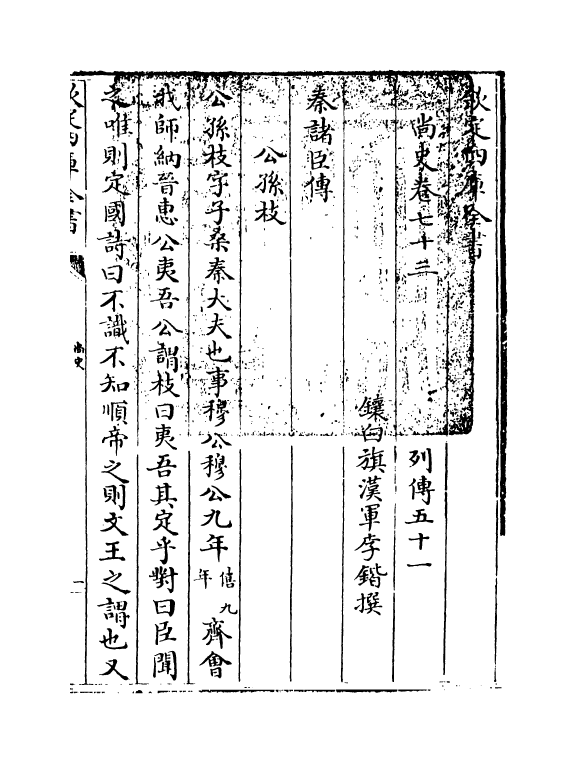 欽定四庫全書
尚史卷七十三　列傳五十一
鑲白旗漢軍李鍇撰
秦諸臣傳
公孫枝
公孫枝字子桑秦大夫也事穆公穆公九年僖九年齊會
我師納晉惠公夷吾公謂枝曰夷吾其定乎對曰臣聞
之唯則定國詩曰不識不知順帝之則文王之謂也又
欽定四庫全書
尚史
一